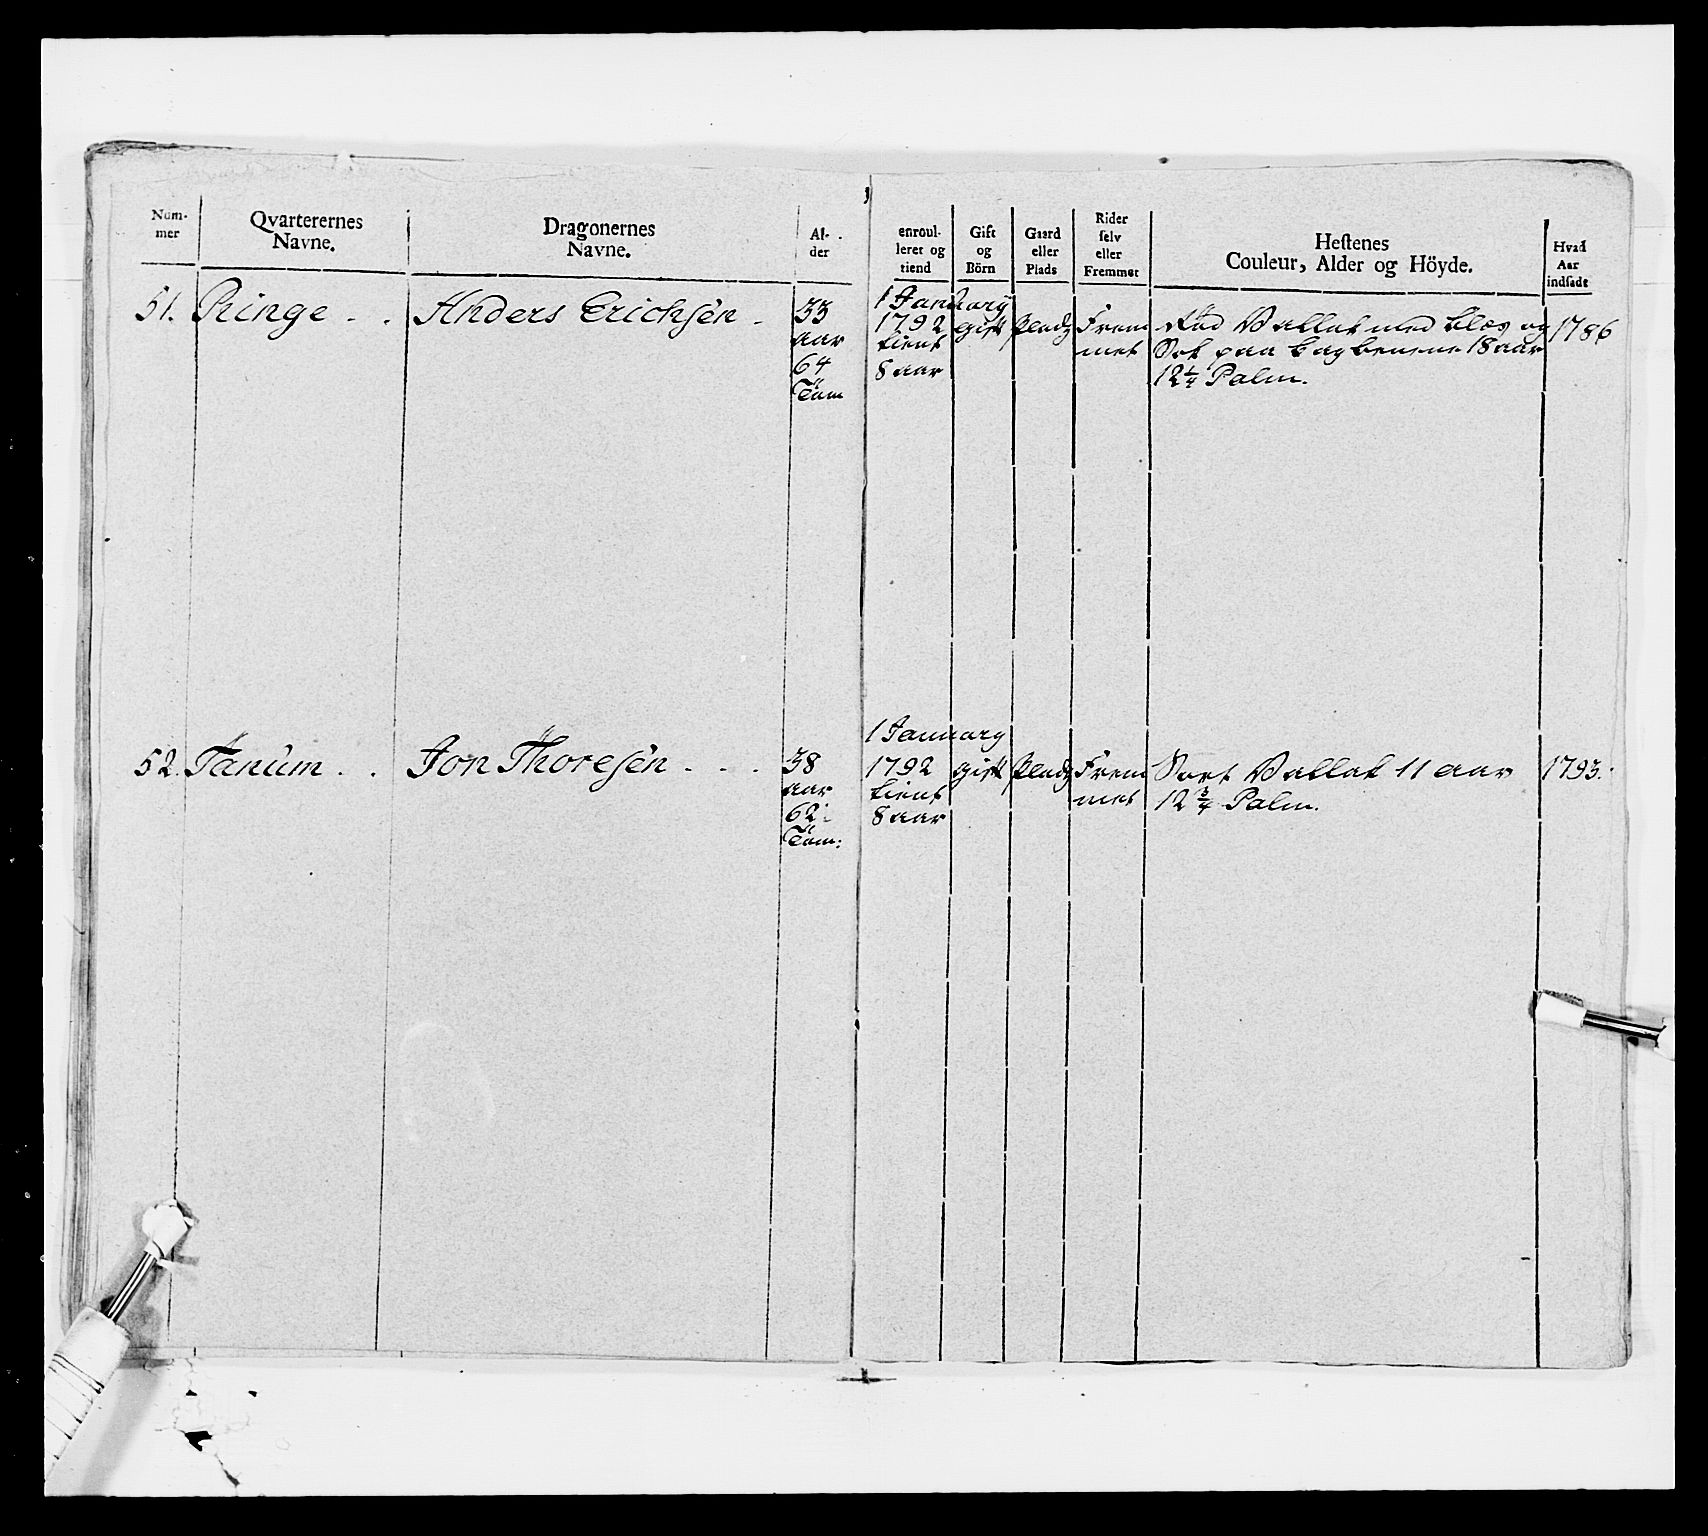 Num-
mer
Qvarterernes
Navne.
Dragonernes
Navne.
Al-
der
enroul-
leret og
tiend
Gift
og
Börn
Gaard
eller
Plads
Rider
selv
eller
Fremmet
Hestenes
Couleur, Alder og Höyde.
Hvad
Aar
indsadt
51. Ringe - . Anders Erichsen -
33
aar
64
Tom
1 January
1792
tient
8 aar
gift
Plads
Frem
met
Rød Vallak med blæs og
Sok paa bagbenene 18 aar
12 1/4 Palm.
1786
52. Tanum . . Jon Thoresen - - -
38
aar
62:
Tom:
1 January
1792
tient
8 aar
gift
Plads
Frem
met
Sort Vallak 11 aar
12 3/4 Palm.
1793.